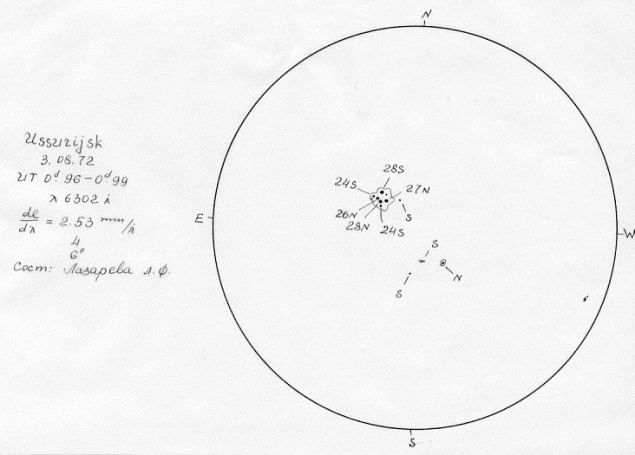 Ussurijsk
3.08.72
UT 0ᵈ.96-0ᵈ.99
λ 6302 Å
dl/dλ = 2.53 mm/Å
4
6"
Сост: Лазарева Л.Ф.
N
28S
24S
27N
E
26N
S
28N
24S
W
S
S
N
S